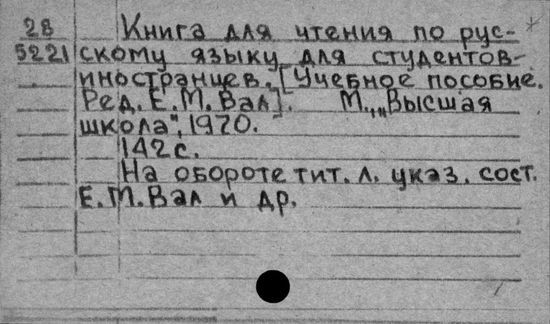 28 Книга для чтения по рус-
5221 скому языку для студентов-
иностранцев. [Учебное пособие.
Ред. Е.М.Вал]. М., „Высшая
школа", 1970.
142 с.
На обороте тит. л. указ. сост.
Е.М.Вал и др.